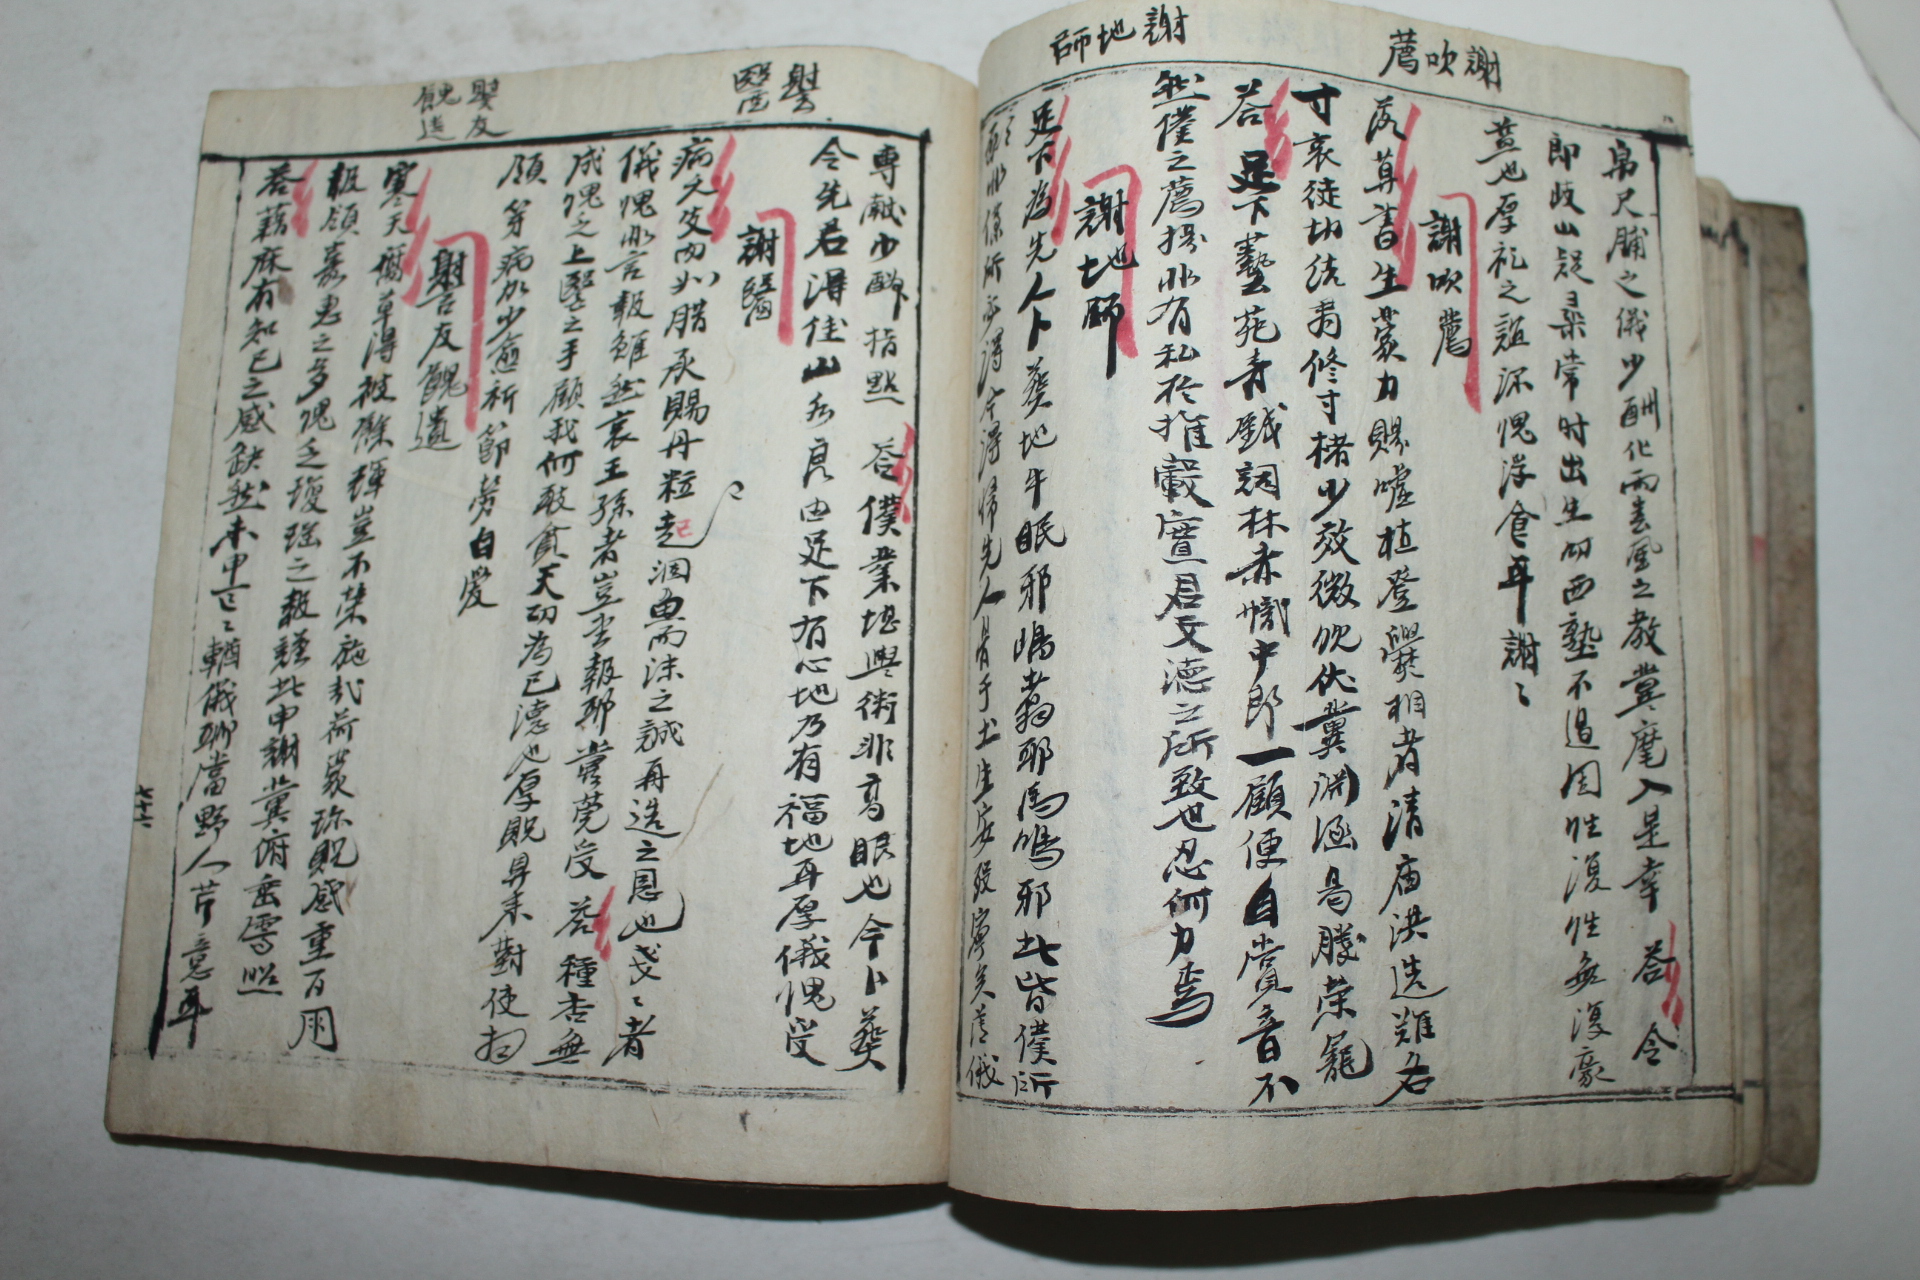 謝吹薦
謝地師
帛尺脯之儀少酬化雨春風之教冀麾入是幸 答 令
即岐山疑尋常時出生而西塾不過困性復性無復豪
益也厚禮之詛深愧浮食耳謝〻
謝吹薦
落草書生蒙力賜噓植登爨桐者清庙洪造難名
寸衷徒切結草修寸楮少效微悅伏冀淵涵曷勝榮寵
答 足下藝苑青錢詞林赤幟中郎一顧便自賞音不
然僕之薦揚非有私於推轂實君文德之所致也忍何力焉
謝地師
足下為先人卜葬地牛眠邪鳴翥耶馬鳴邪此皆僕所
〻而非係所必得今得歸先人骨于土生安歿寧矣菲儀
謝醫
謝友餽遺
專獻少酧指點 答 僕業堪輿術非高眼也今卜葬
令先君得佳山水良由足下有心地乃有福地耳厚儀愧受
謝醫
病久皮肉如腊承賜丹粒起涸魚而沫之誠再造之恩也戔〻者
儀愧非言報雖然哀王孫者豈望報耶嘗莞受 答 種杏無
成愧乏上醫之手顧我何敢貪天功為已德也厚貺昇來對使扣
領 穿病加少愈祈節勞自愛
謝吾友餽遺
寒天獨草得被餘輝豈不榮施哉荷蒙珍貺感重百朋
報領嘉惠之多愧乏瓊瑤之報謹此申謝冀俯垂霽照
答 藉庥有知已之感缺然未申云〻輶儀聊當野人芹意耳
七十六